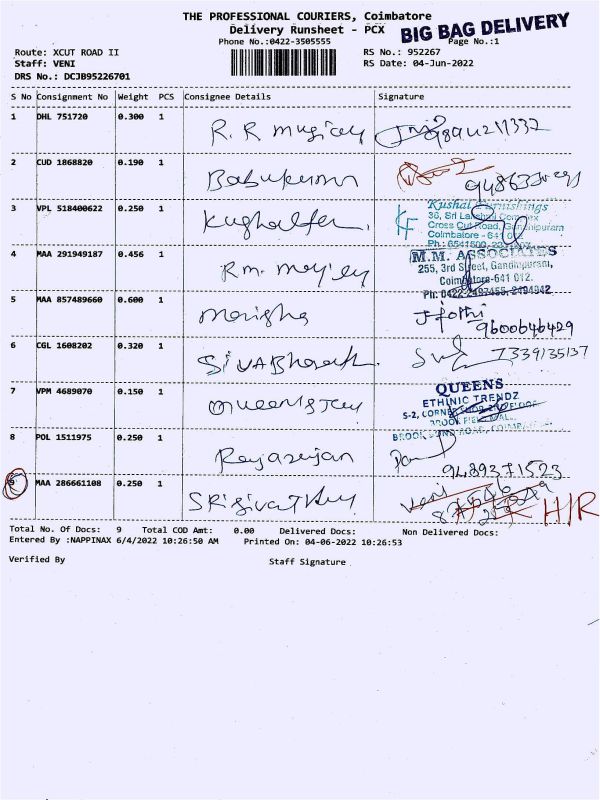 THE PROFESSIONAL COURIERS, Coimbatore
Delivery Runsheet - PCX
BIG BAG DELIVERY
Phone No.:0422-3505555
Page No.:1
Route: XCUT ROAD II
RS No.: 952267
Staff: VENI
RS Date: 04-Jun-2022
DRS No.: DCJB95226701
S No Consignment No Weight PCS Consignee Details Signature
1 DHL 751720 0.300 1 R. R
2 CUD 1868820 0.190 1
3 VPL 518400622 0.250 1
Kushal Furnishings
36, Sri Lakshmi Complex
Cross Cut Road, Gandhipuram
Coimbatore - 641 012
KF
4 MAA 291949187 0.456 1 R.M.
M.M. ASSOCIATES
255, 3rd Street, Gandhipuram,
Coimbatore-641 012.
Ph: 0422-2497455, 2494942
5 MAA 857489660 0.600 1 Monisha Jothi
9600646429
6 CGL 1608202 0.320 1 Siva Bharath 7339135137
7 VPM 4689070 0.150 1
QUEENS
ETHINIC TRENDZ
8 POL 1511975 0.250 1 Rajarajan
9489371523
9 MAA 286661108 0.250 1 Veni
H/R
Total No. Of Docs: 9 Total COD Amt: 0.00 Delivered Docs: Non Delivered Docs:
Entered By :NAPPINAX 6/4/2022 10:26:50 AM Printed On: 04-06-2022 10:26:53
Verified By Staff Signature